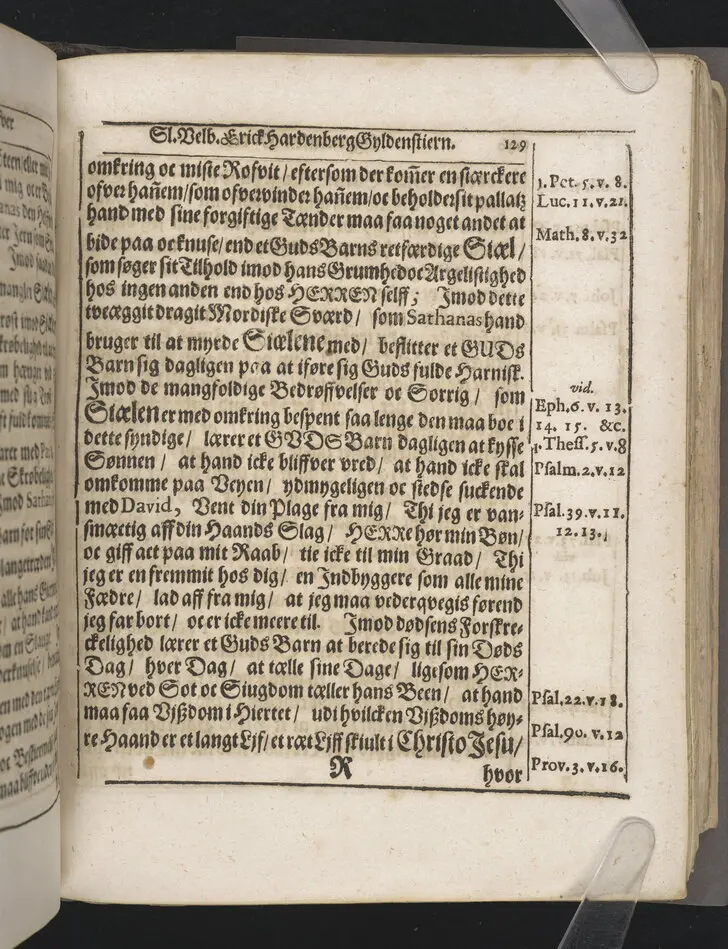 Sl. Velb. Erick Hardenberg Gyldenstiern. 129
omkring oc miste Rofvit / eftersom der kom̃er en stærckere
ofver hañem / som ofvervinder hañem / oc beholder sit pallatz
hand med sine forgiftige Tænder maa faa noget andet at
bide paa oc knuse / end et Guds Barns retfærdige Siæl /
som søger sit Tilhold imod hans Grumhed oc Argelistighed
hos ingen anden end hos HERREN self; Imod dette
tveæggit dragit Mordiske Sværd / som Sathanas hand
bruger til at myrde Siælene med / beflitter et GUDs
Barn sig dagligen paa at iføre sig Guds fulde Harnisk.
Imod de mangfoldige Bedrøffvelser oc Sorrig / som
Siælen er med omkring bespent saa lenge den maa boe i
dette syndige / lærer et GVDS Barn dagligen at kysse
Sønnen / at hand icke bliffver vred / at hand icke skal
omkomme paa Veyen / ydmygeligen oc stedse suckende
med David, Vent din Plage fra mig / Thi jeg er van-
smæctig aff din Haands Slag / HERRe hør min Bøn /
oc giff act paa mit Raab / tie icke til min Graad / Thi
jeg er en fremmit hos dig / en Indbyggere som alle mine
Fædre / lad aff fra mig / at jeg maa vederqvegis førend
jeg far bort / oc er icke meere til. Imod dødsens Forskre-
ckelighed lærer et Guds Barn at berede sig til sin Døds
Dag / hver Dag / at tælle sine Dage / lige som HER-
REN ved Sot oc Siugdom tæller hans Been / at hand
maa faa Vjßdom i Hiertet / udi hvilcken Vjßdoms høy-
re Haand er et langt Ljf / et ræt Ljff skiult i Christo Jesu /
R hvor
1. Pet. 5. v. 8.
Luc. 11. v. 21.
Math. 8. v. 32
vid.
Eph. 6. v. 13.
14. 15. &c.
1. Thess. 5. v. 8
Psalm. 2. v. 12
Psal. 39. v. 11.
12. 13.
Psal. 22. v. 18.
Psal. 90. v. 12
Prov. 3. v. 16.